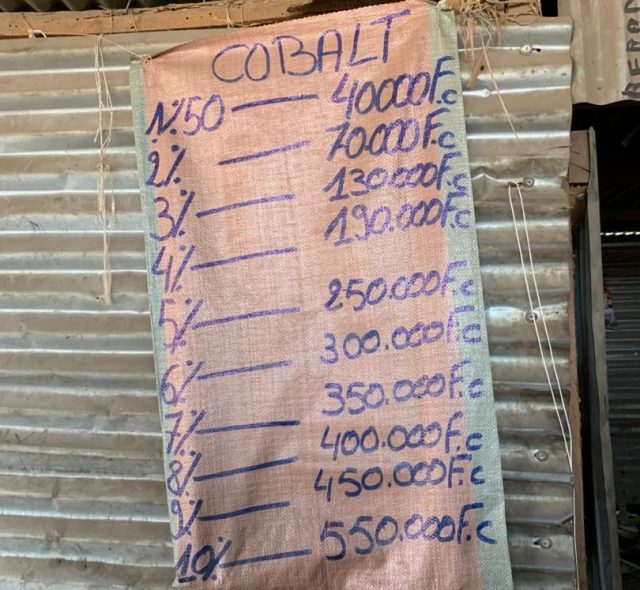 COBALT
1%50 — 40000F.c
2% — 70.000F.c
3% — 130.000F.c
4% — 190.000F.c
5% — 250.000F.c
6% — 300.000F.c
7% — 350.000F.c
8% — 400.000F.c
9% — 450.000F.c
10% — 550.000F.c